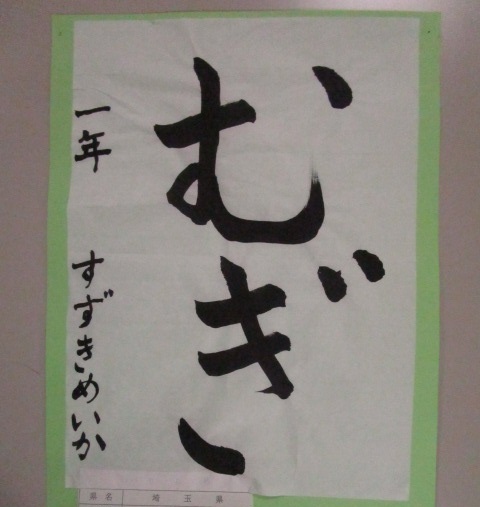 むぎ
一年 すずきめいか
県名 埼玉県